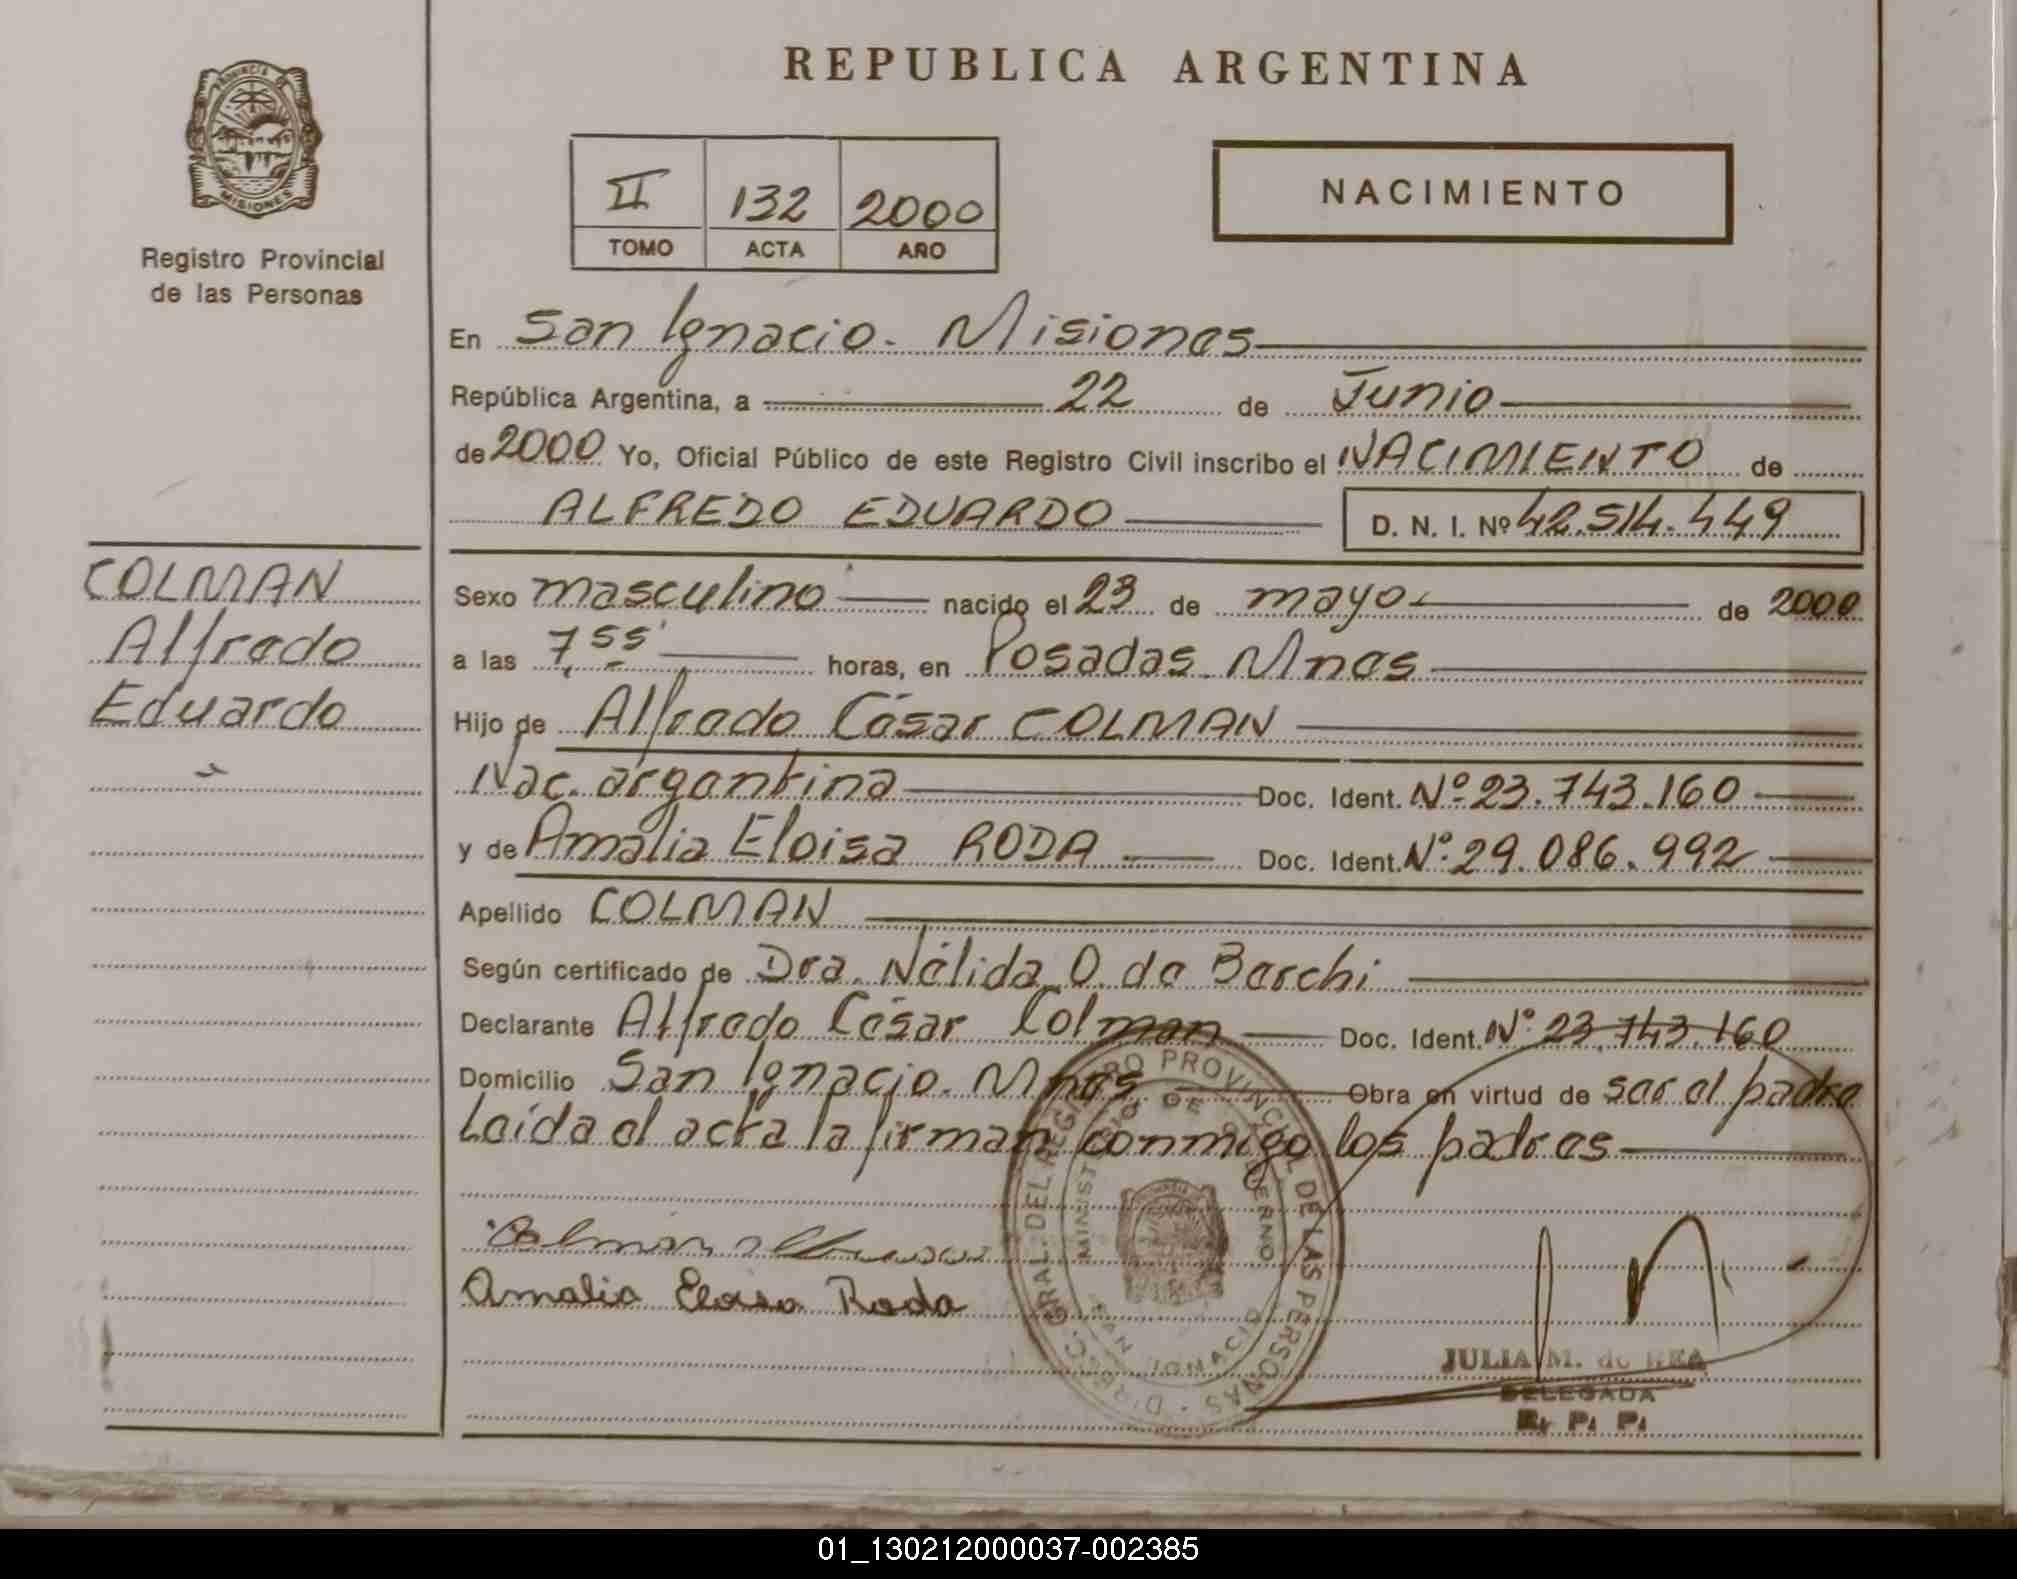 REPUBLICA ARGENTINA
PROVINCIA DE MISIONES
Registro Provincial
de las Personas
II 132 2000
TOMO ACTA AÑO
NACIMIENTO
En San Ignacio. Misiones
República Argentina, a 22 de Junio
de 2000 Yo, Oficial Público de este Registro Civil inscribo el NACIMIENTO de
ALFREDO EDUARDO D. N. I. Nº 42.514.449
COLMAN
Alfredo
Eduardo
Sexo masculino nacido el 23 de mayo de 2000
a las 7,55' horas, en Posadas. Mnes
Hijo de Alfredo César COLMAN
Nac. argentina Doc. Ident. Nº 23.743.160
y de Amalia Eloisa RODA Doc. Ident. Nº 29.086.992
Apellido COLMAN
Según certificado de Dra. Nélida O. de Barchi
Declarante Alfredo César Colman Doc. Ident. Nº 23.743.160
Domicilio San Ignacio. Mnes Obra en virtud de ser el padre
Leída el acta la firman conmigo los padres
Colman
Amalia Eloisa Roda
DIREC. GRAL. DEL REGISTRO PROVINCIAL DE LAS PERSONAS
MINISTERIO DE GOBIERNO
SAN IGNACIO
JULIA M. de REA
DELEGADA
R. P. P.
01_130212000037-002385